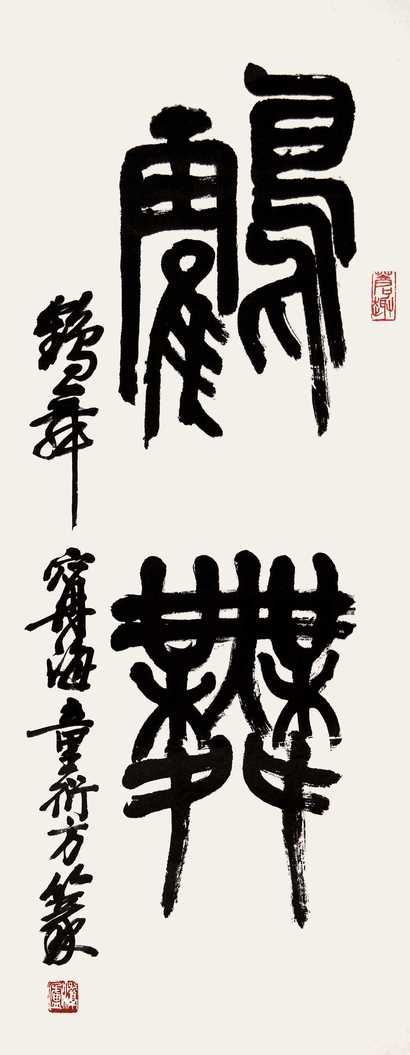 鶴舞
鶴舞 甯海童衍方篆